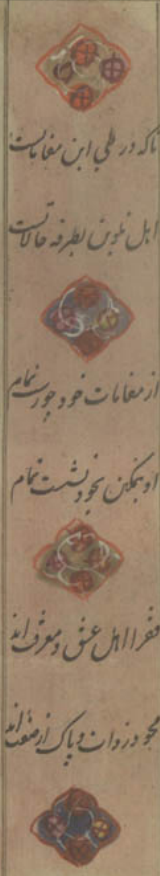 تا که در طی این مقاماتست
اهل تلوین بطرفه حالاتست
از مقامات خود چو رست تمام
او بتمکین خود نشست تمام
فقرا اهل عشق و معرفت‌اند
محو در ذات و پاک از صفت‌اند